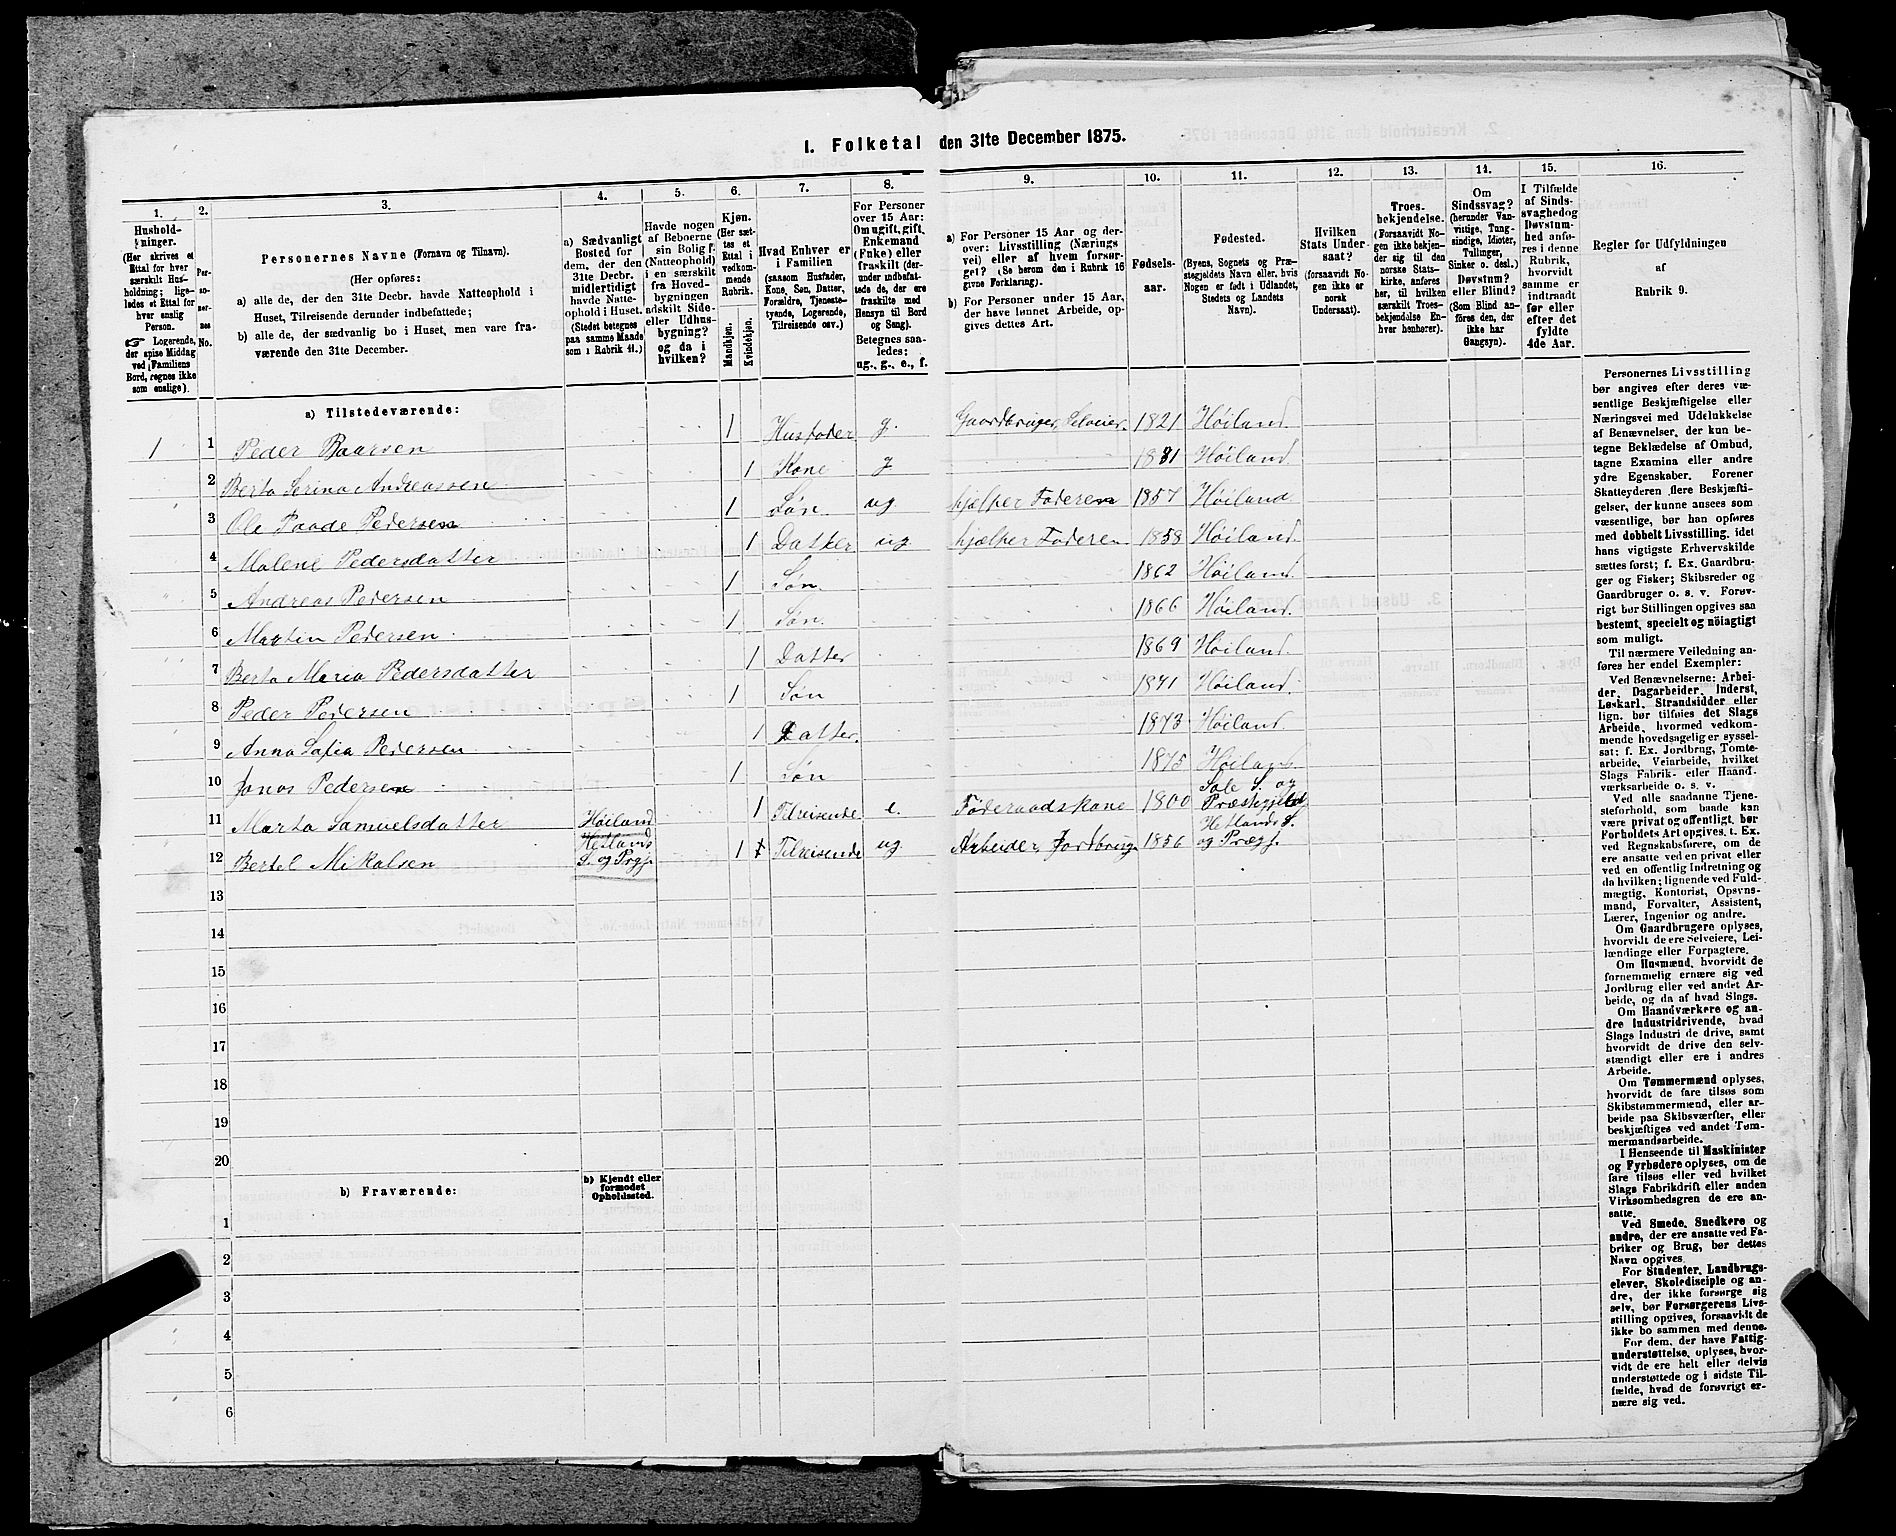 1. Folketal den 31te December 1875.
1. 2. 3. 4. 5. 6. 7. 8. 9. 10. 11. 12. 13. 14. 15. 16.
Hushold-
ninger.
(Her skrives et
Ettal for hver
særskilt Hus-
holdning; lige-
ledes et Ettal for
hver enslig
Person.
☞ Logerende,
der spise Middag
ved Familiens
Bord, regnes ikke
som enslige).
Per-
so-
ner-
nes
No.
Personernes Navne (Fornavn og Tilnavn).
(Her opføres:
a) alle de, der den 31te Decbr. havde Natteophold i
Huset, Tilreisende derunder indbefattede;
b) alle de, der sædvanlig bo i Huset, men vare fra-
værende den 31te December.
a) Sædvanligt
Bosted for
dem, der den
31te Decbr.
midlertidigt
havde Natte-
ophold i Huset.
(Stedet betegnes
paa samme Maade
som i Rubrik 11.)
Havde nogen
af Beboerne
sin Bolig ɔ:
(Natteophold)
i en særskilt
fra Hoved-
bygningen
adskilt Side-
eller Udhus-
bygning?
og da i
hvilken?
Kjøn.
(Her sæt-
tes et
Ettal i
vedkom-
mende
Rubrik.
Mandkjøn.
Kvindekjøn.
Hvad Enhver er
i Familien
(saasom Husfader,
Kone, Søn, Datter,
Forældre, Tjeneste-
tyende, Logerende,
Tilreisende osv.)
For Personer
over 15 Aar:
Om ugift, gift,
Enkemand
(Enke) eller
fraskilt (der-
under indbefat-
tede de, der ere
fraskilte med
Hensyn til Bord
og Seng).
Betegnes saa-
ledes:
ug., g., e., f.
a) For Personer 15 Aar og der-
over: Livsstilling (Nærings
vei) eller af hvem forsør-
get? (Se herom den i Rubrik 16
givne Forklaring).
b) For Personer under 15 Aar,
der have lønnet Arbeide, op-
gives dettes Art.
Fødsels-
aar.
Fødested.
(Byens, Sognets og Præ-
stegjeldets Navn eller, hvis
Nogen er født i Udlandet,
Stedets og Landets
Navn).
Hvilken
Stats Under-
saat?
(forsaavidt No-
gen ikke er
norsk
Undersaat).
Troes-
bekjendelse.
(Forsaavidt No-
gen ikke bekjen-
der sig til den
norske Stats-
kirke, anføres
her, til hvilken
særskilt Troes-
bekjendelse En-
hver henhører).
Om
Sindssvag?
(herunder Van-
vittige, Tung-
sindige, Idioter,
Tullinger,
Sinker o. desl.)
Døvstum?
eller Blind?
(Som Blind an-
føres den, der
ikke har
Gangsyn).
I Tilfælde
af Sinds-
svaghedog
Døvstum-
hed anfø-
res i denne
Rubrik,
hvorvidt
samme er
indtraadt
før eller
efter det
fyldte
4de Aar.
Regler for Udfyldningen
af
Rubrik 9.
a) Tilstedeværende:
1 1 Peder Baarsen 1 Husfader g. Gaardbruger, Selveier. 1821 Høiland.
2 Berta Serina Andreassen 1 Kone g 1831 Høiland.
3 Ole Paade Pedersen 1 Søn. ug hjælper Faderen 1857 Høiland.
4 Malene Pedersdatter 1 Datter ug hjælper Faderen 1858 Høiland.
5 Andreas Pedersen 1 Søn 1862 Høiland.
6 Martin Pedersen 1 Søn. 1866 Høiland.
7 Berta Maria Pedersdatter 1 Datter 1869 Høiland.
8 Peder Pedersen 1 Søn 1871 Høiland.
9 Anna Sofia Pedersen 1 Datter. 1873 Høiland.
10 Jonas Pedersen 1 Søn 1875 Høiland
11 Marta Samuelsdatter Høiland 1 Tilreisende e. Føderaadskone 1800 Sole S. og Præstegjeld
12 Bertel Mikalsen Hetlands S. og Prgj. 1 Tilreisende ug Arbeider Jordbrug 1856 Hetlands S. og Prægj.
13
14
15
16
17
18
19
20
b) Fraværende:
b) Kjendt eller
formodet
Opholdssted.
1
2
3
4
5
6
Personernes Livsstilling
bør angives efter deres væ-
sentlige Beskjæftigelse eller
Næringsvei med Udelukkelse
af Benævnelser, der kun be-
tegne Beklædelse af Ombud,
tagne Examina eller andre
ydre Egenskaber. Forener
Skatteyderen flere Beskjæfti-
gelser, der kunne ansees som
væsentlige, bør han opføres
med dobbelt Livsstilling, idet
hans vigtigste Erhvervskilde
sættes først; f. Ex. Gaardbru-
ger og Fisker; Skibsreder og
Gaardbruger o. s. v. Forøv-
rigt bør Stillingen opgives saa
bestemt, specielt og nöiagtigt
som muligt.
Til nærmere Veiledning an-
føres her endel Exempler:
Ved Benævnelserne: Arbei-
der, Dagarbeider, Inderst,
Løskarl, Strandsidder eller
lign. bør tilføies det Slags
Arbeide, hvormed vedkom-
mende hovedsagelig er syssel-
sat; f. Ex. Jordbrug, Tomte-
arbeide, Veiarbeide, hvilket
Slags Fabrik- eller Haand-
værksarbeide o. s. v.
Ved alle saadanne Tjene-
steforhold, som baade kan
være privat og offentligt, bør
Forholdets Art opgives, t. Ex.
ved Regnskabsførere, om de
ere ansatte ved en privat eller
ved en offentlig Indretning og
da hvilken; lignende ved Fuld-
mægtig, Kontorist, Opsyns-
mand, Forvalter, Assistent,
Lærer, Ingeniør og andre.
Om Gaardbrugere oplyses,
hvorvidt de ere Selveiere, Lei-
lændinge eller Forpagtere.
Om Husmænd, hvorvidt de
fornemmelig ernære sig ved
Jordbrug eller ved andet Ar-
beide, og da af hvad Slags.
Om Haandværkere og an-
dre Industridrivende, hvad
Slags Industri de drive, samt
hvorvidt de drive den selv-
stændigt eller ere i andres
Arbeide.
Om Tømmermænd oplyses,
hvorvidt de fare tilsøs som
Skibstømmermænd, eller ar-
beide paa Skibsværfter, eller
beskjæftiges ved andet Tøm-
mermandsarbeide.
I Henseende til Maskinister
og Fyrbødere oplyses, om de
fare tilsøs eller ved hvilket
Slags Fabrikdrift eller anden
Virksomhedsgren de ere an-
satte.
Ved Smede, Snedkere og
andre, der ere ansatte ved Fa-
briker og Brug, bør dettes
Navn opgives.
For Studenter, Landbrugs-
elever, Skoledisciple og an-
dre, der ikke forsørge sig
selv, bør Forsørgerens Livs-
stilling opgives, forsaavidt de
ikke bo sammen med denne.
For dem, der have Fattig-
understøttelse, oplyses, hvor-
vidt de ere helt eller delvis
understøttede og i sidste Til-
fælde, hvad de forøvrigt er-
nære sig ved.